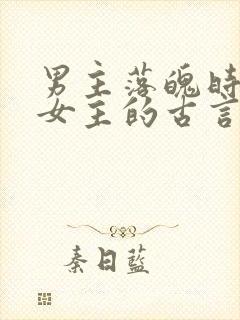 男主落魄时
女主的古言
秦日藍